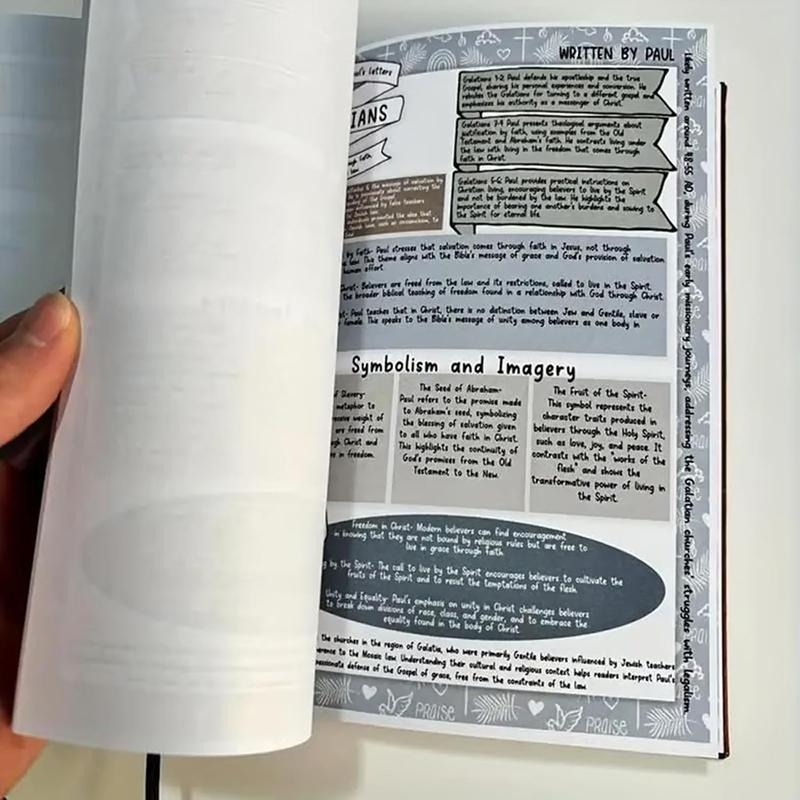 WRITTEN BY PAUL
Paul's letters
IANS
Galatians 1-2: Paul defends his apostleship and the true
Gospel, sharing his personal experiences and conversion. He
rebukes the Galatians for turning to a different gospel and
emphasizes his authority as a messenger of Christ.
Galatians 3-4: Paul presents theological arguments about
justification by faith, using examples from the Old
Testament and Abraham's faith. He contrasts living under
the law with living in the freedom that comes through
faith in Christ.
Galatians 5-6: Paul provides practical instructions on
Christian living, encouraging believers to live by the Spirit
and not be burdened by the law. He highlights the
importance of bearing one another's burdens and sowing to
the Spirit for eternal life.
the message of salvation by
is passionate about correcting the
of the Gospel
influenced by false teachers
Jewish law
promoted the idea that
Jewish laws, such as circumcision, to
by Faith- Paul stresses that salvation comes through faith in Jesus, not through
law. This theme aligns with the Bible's message of grace and God's provision of salvation
human effort.
Christ- Believers are freed from the law and its restrictions, called to live in the Spirit.
the broader biblical teaching of freedom found in a relationship with God through Christ.
Paul teaches that in Christ, there is no distinction between Jew and Gentile, slave or
female. This speaks to the Bible's message of unity among believers as one body in
Symbolism and Imagery
of Slavery-
metaphor to
weight of
are freed from
Christ and
in freedom.
The Seed of Abraham-
Paul refers to the promise made
to Abraham's seed, symbolizing
the blessing of salvation given
to all who have faith in Christ.
This highlights the continuity of
God's promises from the Old
Testament to the New.
The Fruit of the Spirit-
This symbol represents the
character traits produced in
believers through the Holy Spirit,
such as love, joy, and peace. It
contrasts with the "works of the
flesh" and shows the
transformative power of living in
the Spirit.
Freedom in Christ- Modern believers can find encouragement
in knowing that they are not bound by religious rules but are free to
live in grace through faith.
by the Spirit- The call to live by the Spirit encourages believers to cultivate the
fruits of the Spirit and to resist the temptations of the flesh.
Unity and Equality- Paul's emphasis on unity in Christ challenges believers
to break down divisions of race, class, and gender, and to embrace the
equality found in the body of Christ.
the churches in the region of Galatia, who were primarily Gentile believers influenced by Jewish teachers
to the Mosaic law. Understanding their cultural and religious context helps readers interpret Paul's
passionate defense of the Gospel of grace, free from the constraints of the law.
likely written around 48-55 AD, during Paul's early missionary journeys, addressing the Galatian churches' struggles with legalism.
PRAISE
PRAISE